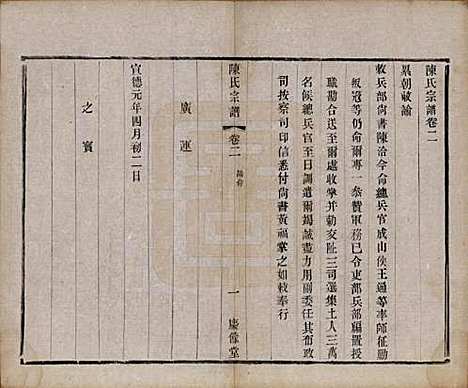 陳氏宗譜卷二
累朝誥諭
敕兵部尚書陳洽今命總兵官成山侯王通等率師征勦
叛寇等仍命爾專一參贊軍務已令吏部兵部編置授
職勘合送至爾處收掌并勅交趾三司選集土人三萬
名候總兵官至日調遣爾竭誠盡力用副委任其布政
司按察司印信悉付尚書黃福掌之如敕奉行
陳氏宗譜
卷二
一
慶餘堂
廣運
宣德元年四月初二日
之寶